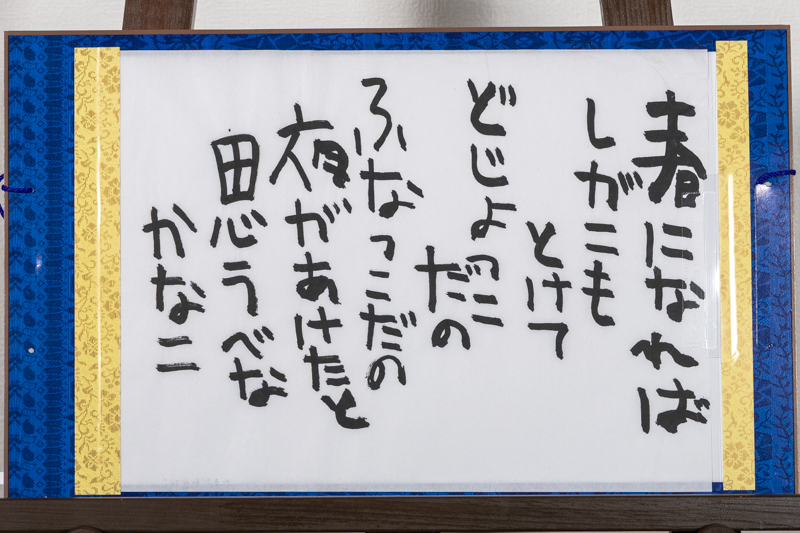 春になれば
しがこも
とけて
どじょっこ
だの
ふなっこだの
夜があけたと
思うべな
かなこ